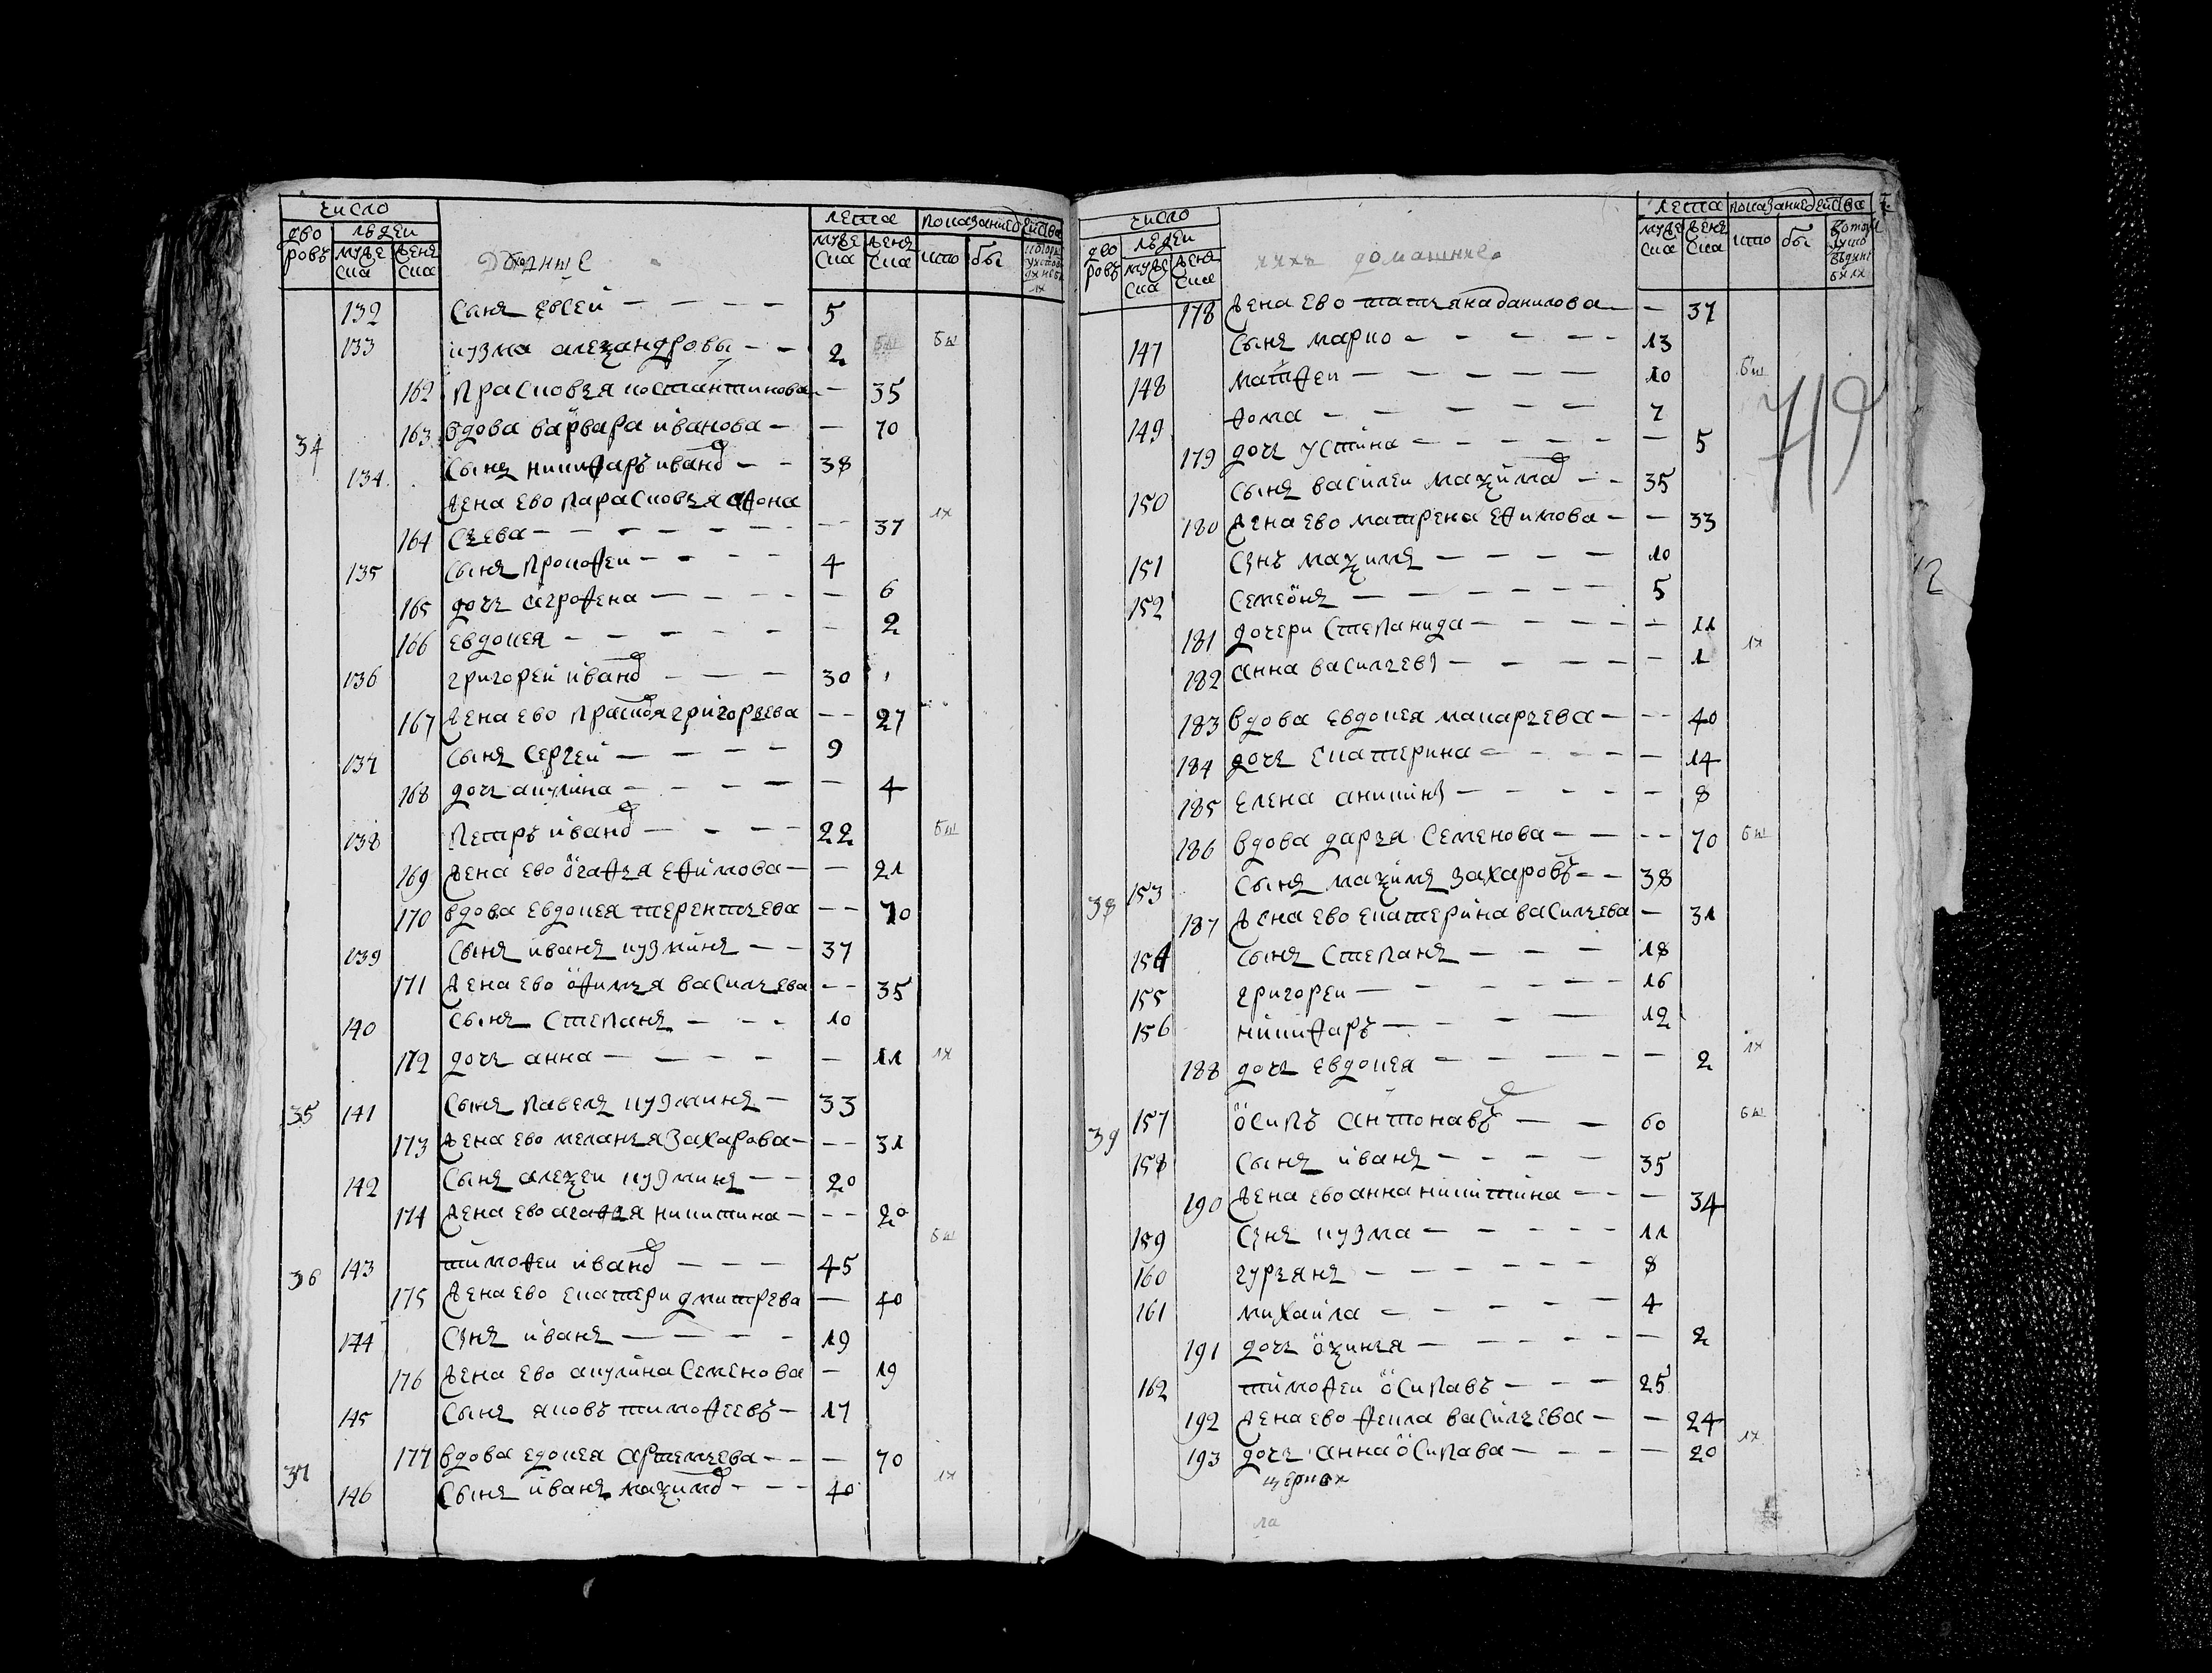 число
дво
ровъ
людеи
муже
ска
женс
ска
Дворныѣ
лета
муже
ска
женс
ска
показание деиства
кто
бы
132 сынъ евсеи — — — — 5
133 кузма алеѯандровы — — 2 бш
162 прасковья костантинова — 35
34 163 вдова варвара иванова — — 70
134 сынъ никифаръ иванов — — 38
жена ево парасковья афона
164 сьева — — — — — — — 37 их
135 сынъ прокофеи — — — — 4
165 дочь агрофена — — — — — 6
166 евдокея — — — — — — 2
136 григореи иванов — — — 30
167 жена ево прасков григорьева — — 27
137 сынъ сергеи — — — — 9
168 дочь акулина — — — — — 4
138 петръ иванов — — — — 22 бш
169 жена ево огафья ефимова — — 21
170 вдова евдокея терентьева — — 70
139 сынъ иванъ кузминъ — — 37
171 жена ево офимья васильева — — 35
140 сынъ степанъ — — — 10
172 дочь анна — — — — — 11 их
35 141 сынъ павелъ кузминъ — 33
173 жена ево меланья захарова — — — 31
142 сынъ алеѯеи кузминъ — — 20
174 жена ево агафья никитина — — — 20
бш
36 143 тимофеи иванов — — — 45
175 жена ево екатери дмитрева — 40
144 сынъ иванъ — — — — 19
176 жена ево акулина семенова — 19
145 сынъ яковъ тимофеевъ — 17
37 177 вдова едокея артемьева — — — 70
146 сынъ иванъ маѯимов — — — 40 их
число
дво
ровъ
людеи
муже
ска
женс
ска
ихъ домашние
лета
муже
ска
женс
ска
показание деиства
кто
бы
178 жена ево татьяна данилова — — 37
147 сынъ марко — — — — — 13
148 матфеи — — — — — — 10 бш
719
149 фома — — — — — — 7
179 дочь устина — — — — — — 5
150 сынъ василеи маѯимов — — 35
180 жена ево матрена ефимова — — 33
151 сынъ маѯимъ — — — — 10
152 семеонъ — — — — — — 5
181 дочери степанида — — — — — 11
182 анна васильев — — — — — 1 их
183 вдова евдокея макарьева — — — 40
184 дочь екатерина — — — — — 14
185 елена аникин — — — — — 8
186 вдова дарья семенова — — — — 70 бш
38 153 сынъ маѯимъ захаровъ — — 38
187 жена ево екатерина васильева — 31
154 сынъ степанъ — — — 18
155 григореи — — — — — — 16
156 никифаръ — — — — 12
188 дочь евдокея — — — — — — 2 их
39 157 осипъ антонавъ — — 60 бш
158 сынъ иванъ — — — — 35
190 жена ево анна никитина — — — 34
159 сынъ кузма — — — — — 11
160 гурьянъ — — — — — — 8
161 михаила — — — — — 4
191 дочь оѯинья — — — — — — 2
162 тимофеи осипавъ — — — 25
192 жена ево фекла васильева — — 24
193 дочь анна осипава — — — — 20 их
церков
ла